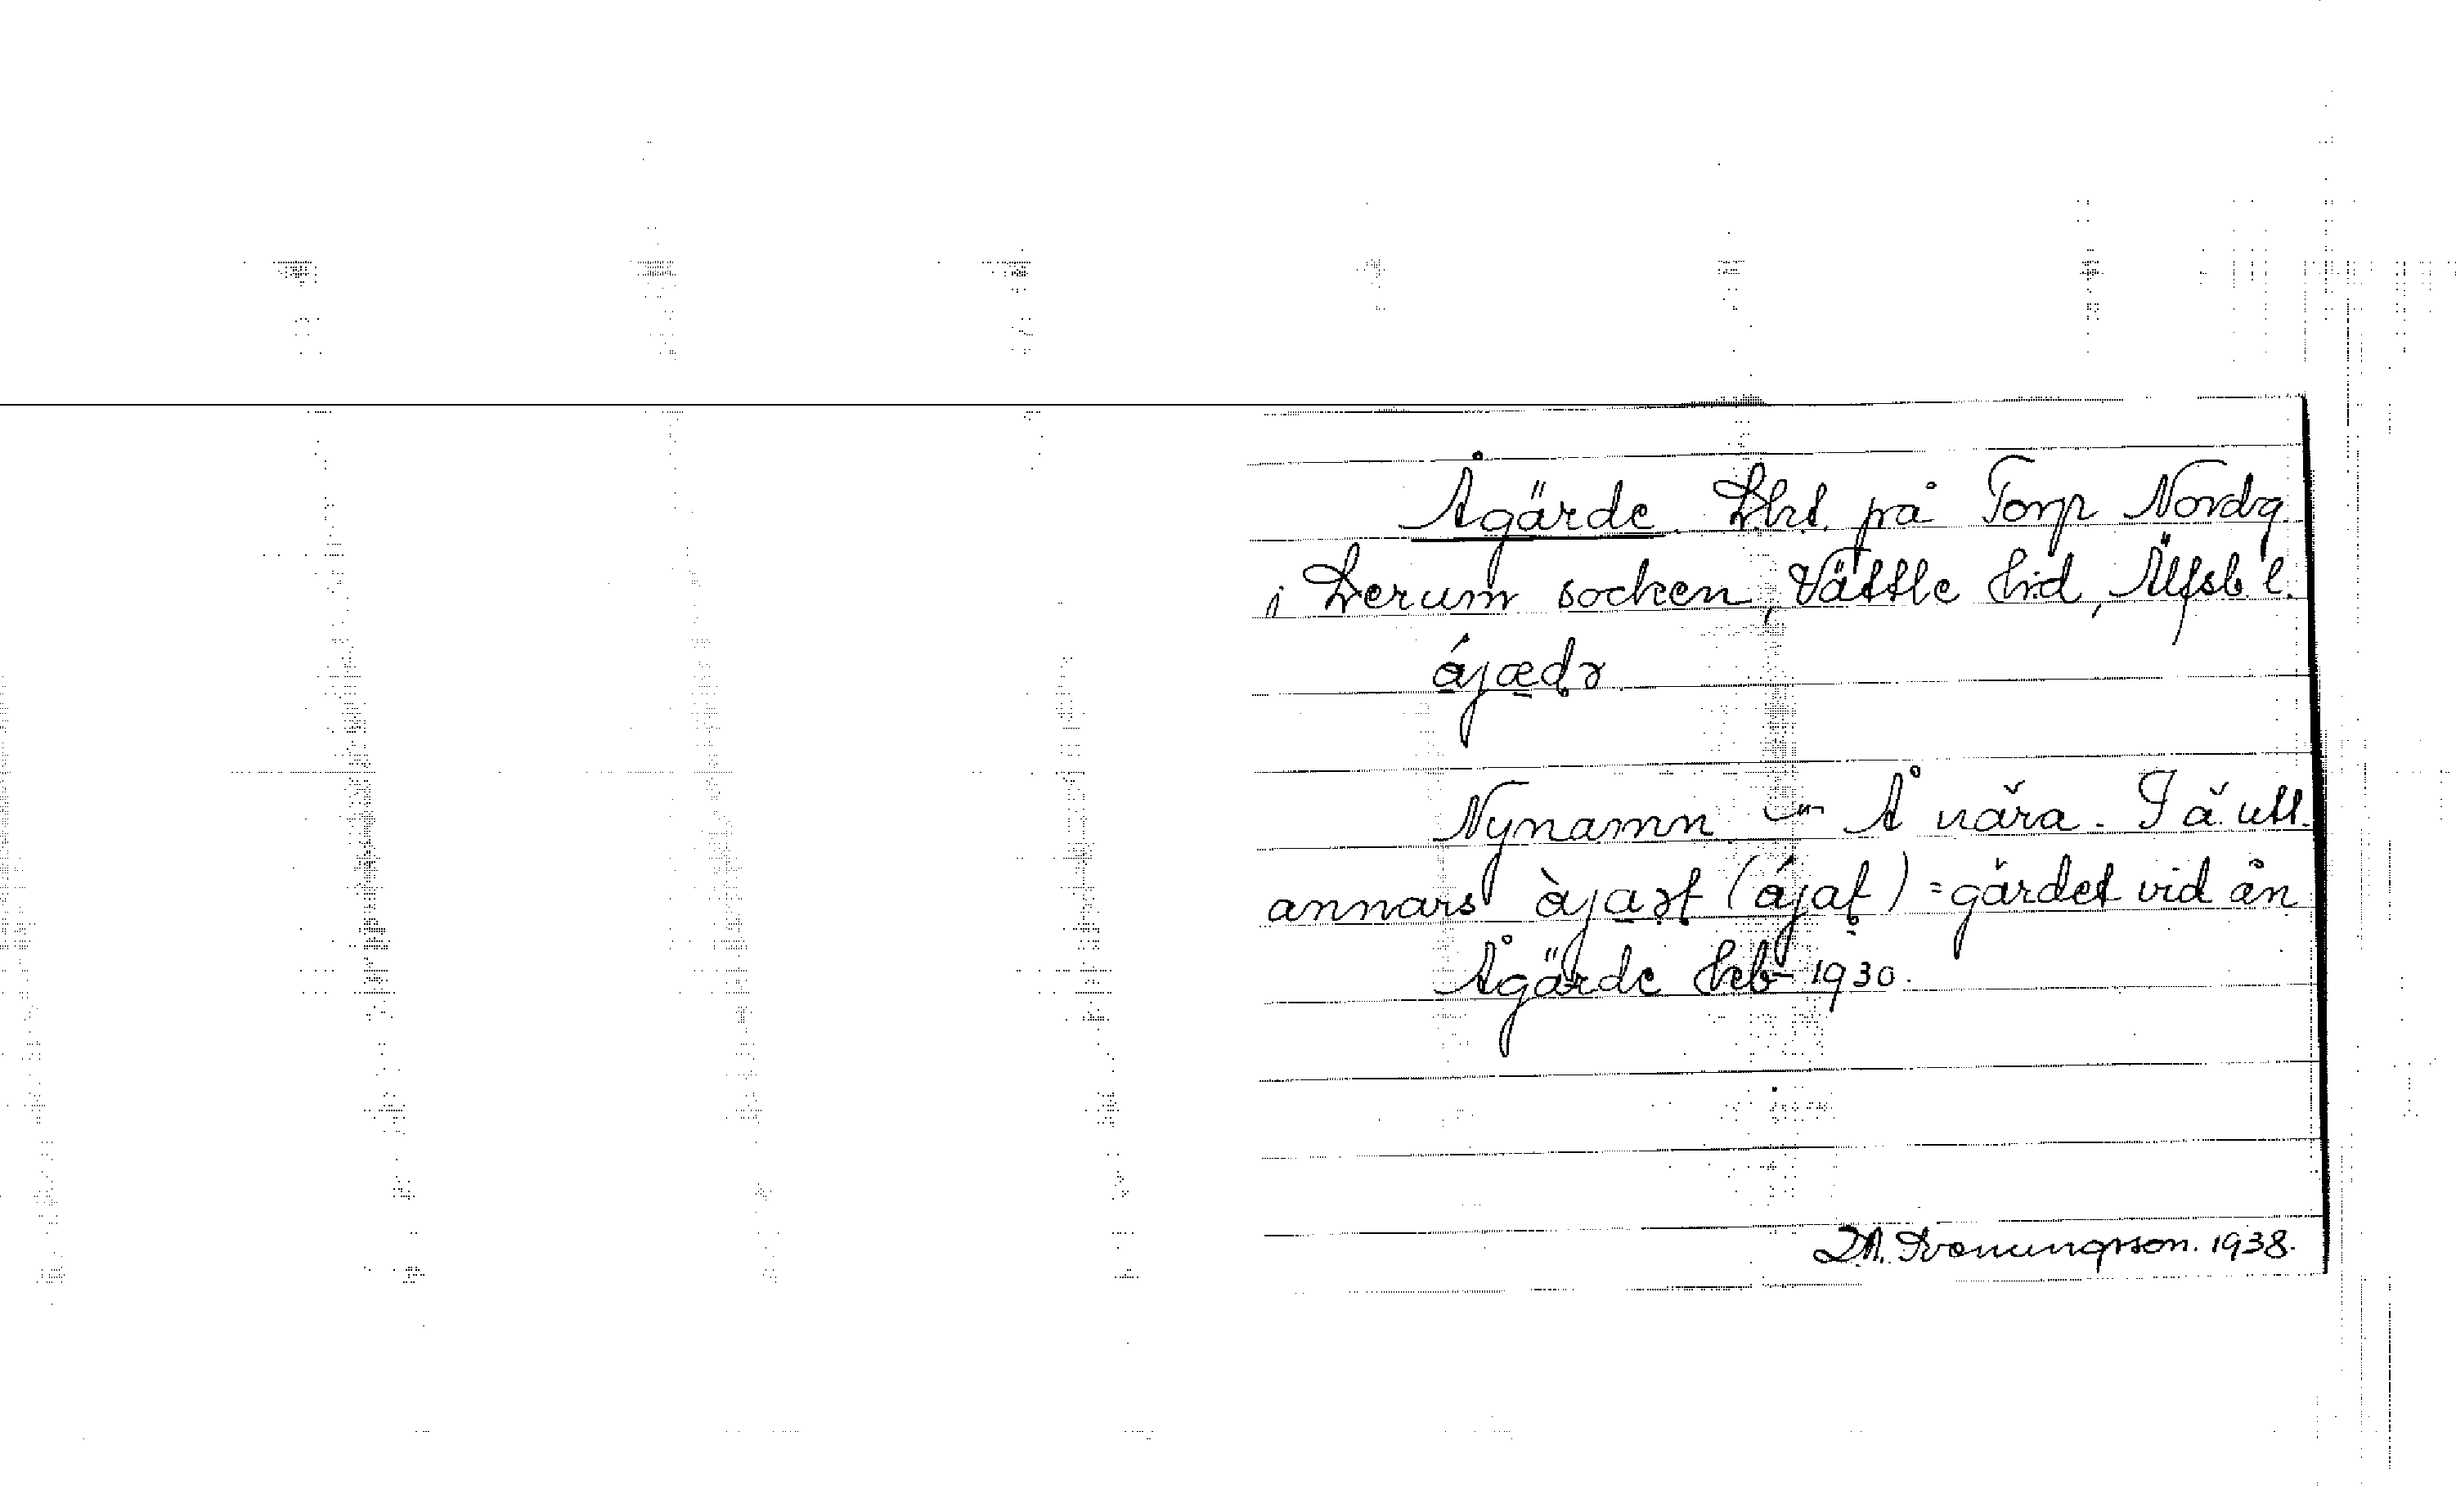 Ågärde. Lht. på Torp Nordg.
i Lerum socken, Vättle hd, Älfsb l.
ájædə
Nynamn – Å nära. I ä. utt.
annars àjaət (ájaṭ) = gärdet vid ån
Ågärde heb 1930.
D.A. Svenungsson. 1938.